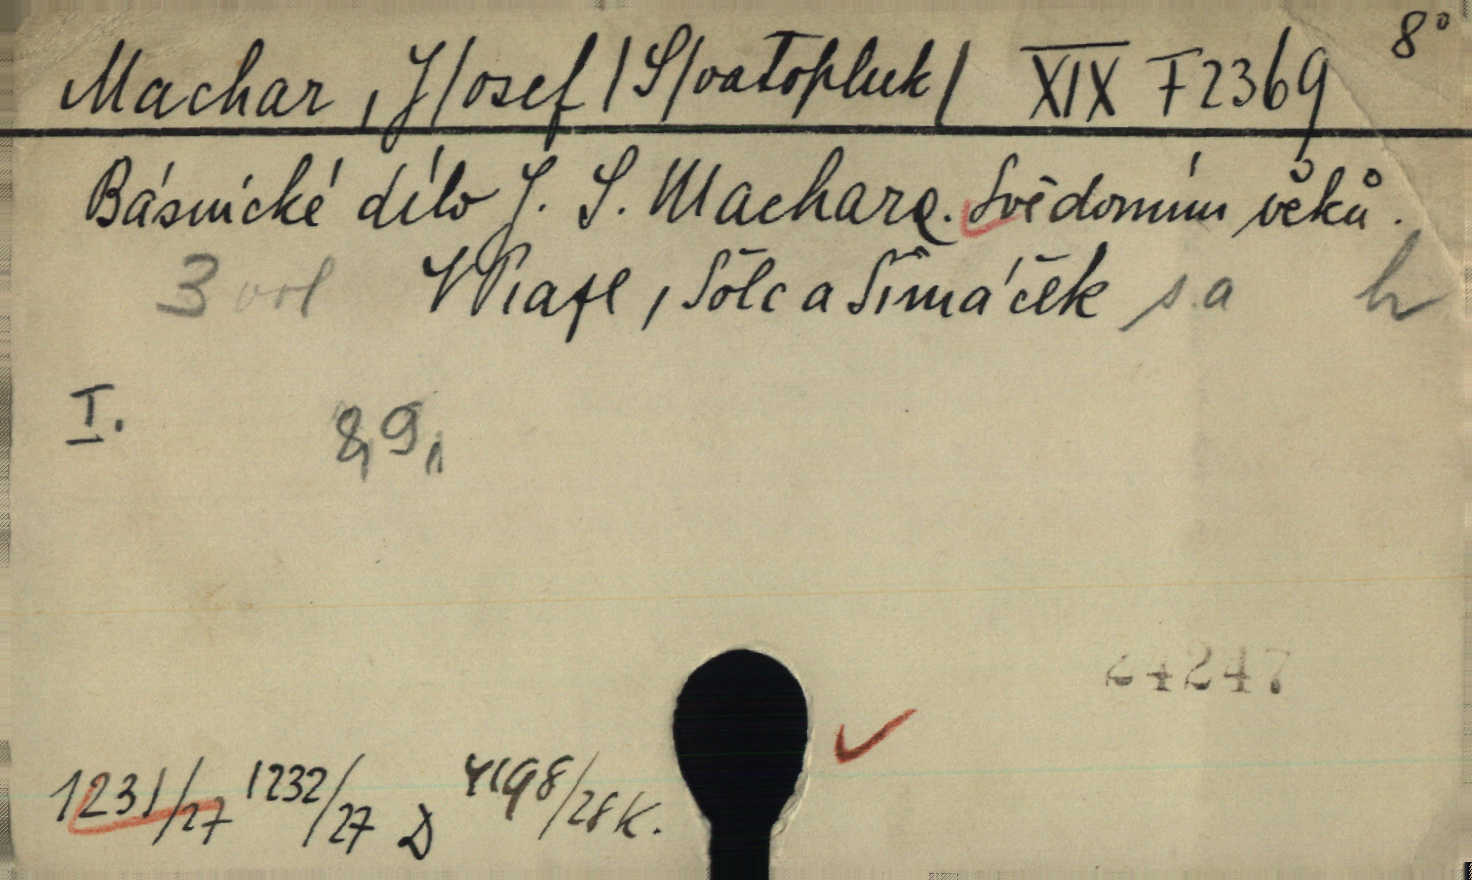 Machar, J/osef/ S/vatopluk/ XIX F 2369 8°
Básnické dílo J. S. Machara. Svědomím věků.
3 vol V Praze, Šolc a Šimáček s. a h
I. 8, 9,
24247
1231/27 1232/27 D 4198/28 K.